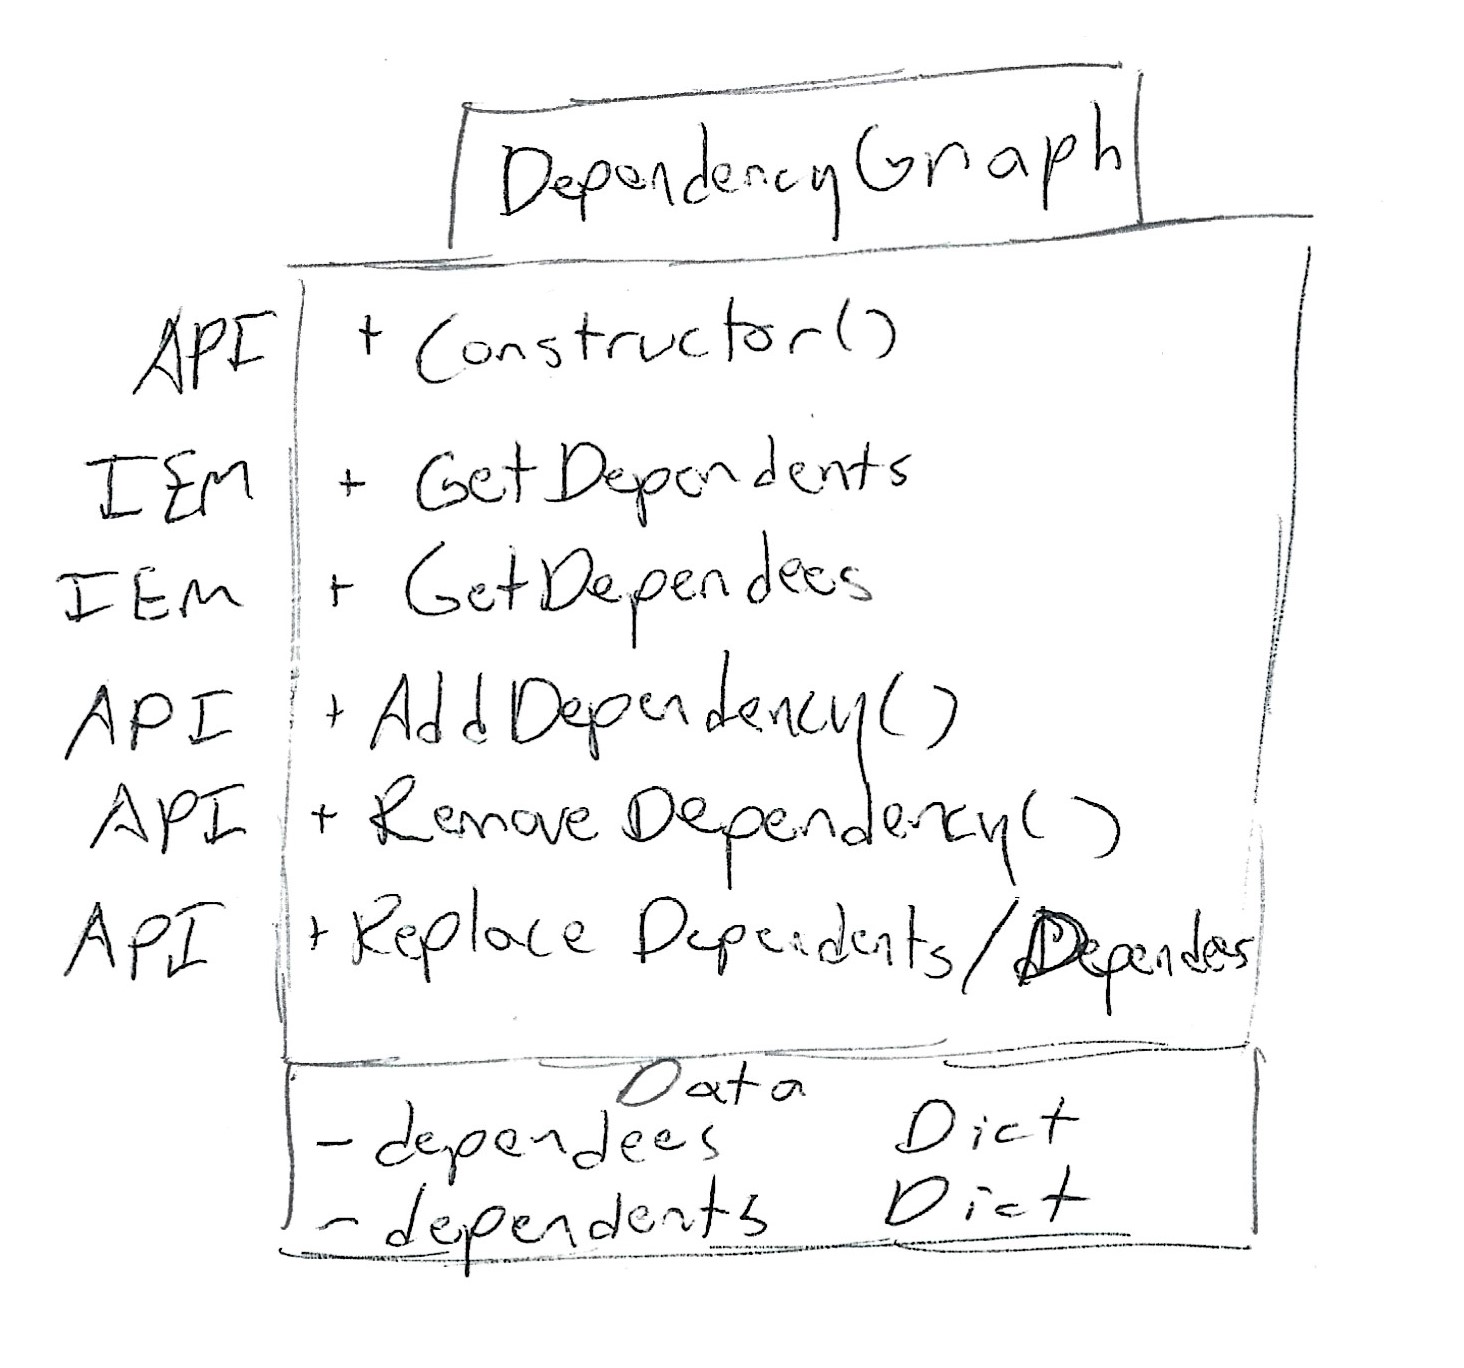 DependencyGraph
API + Constructor()
IEM + GetDependents
IEM + GetDependees
API + AddDependency()
API + Remove Dependency()
API + Replace Dependents/Dependees
Data
- dependees Dict
- dependents Dict